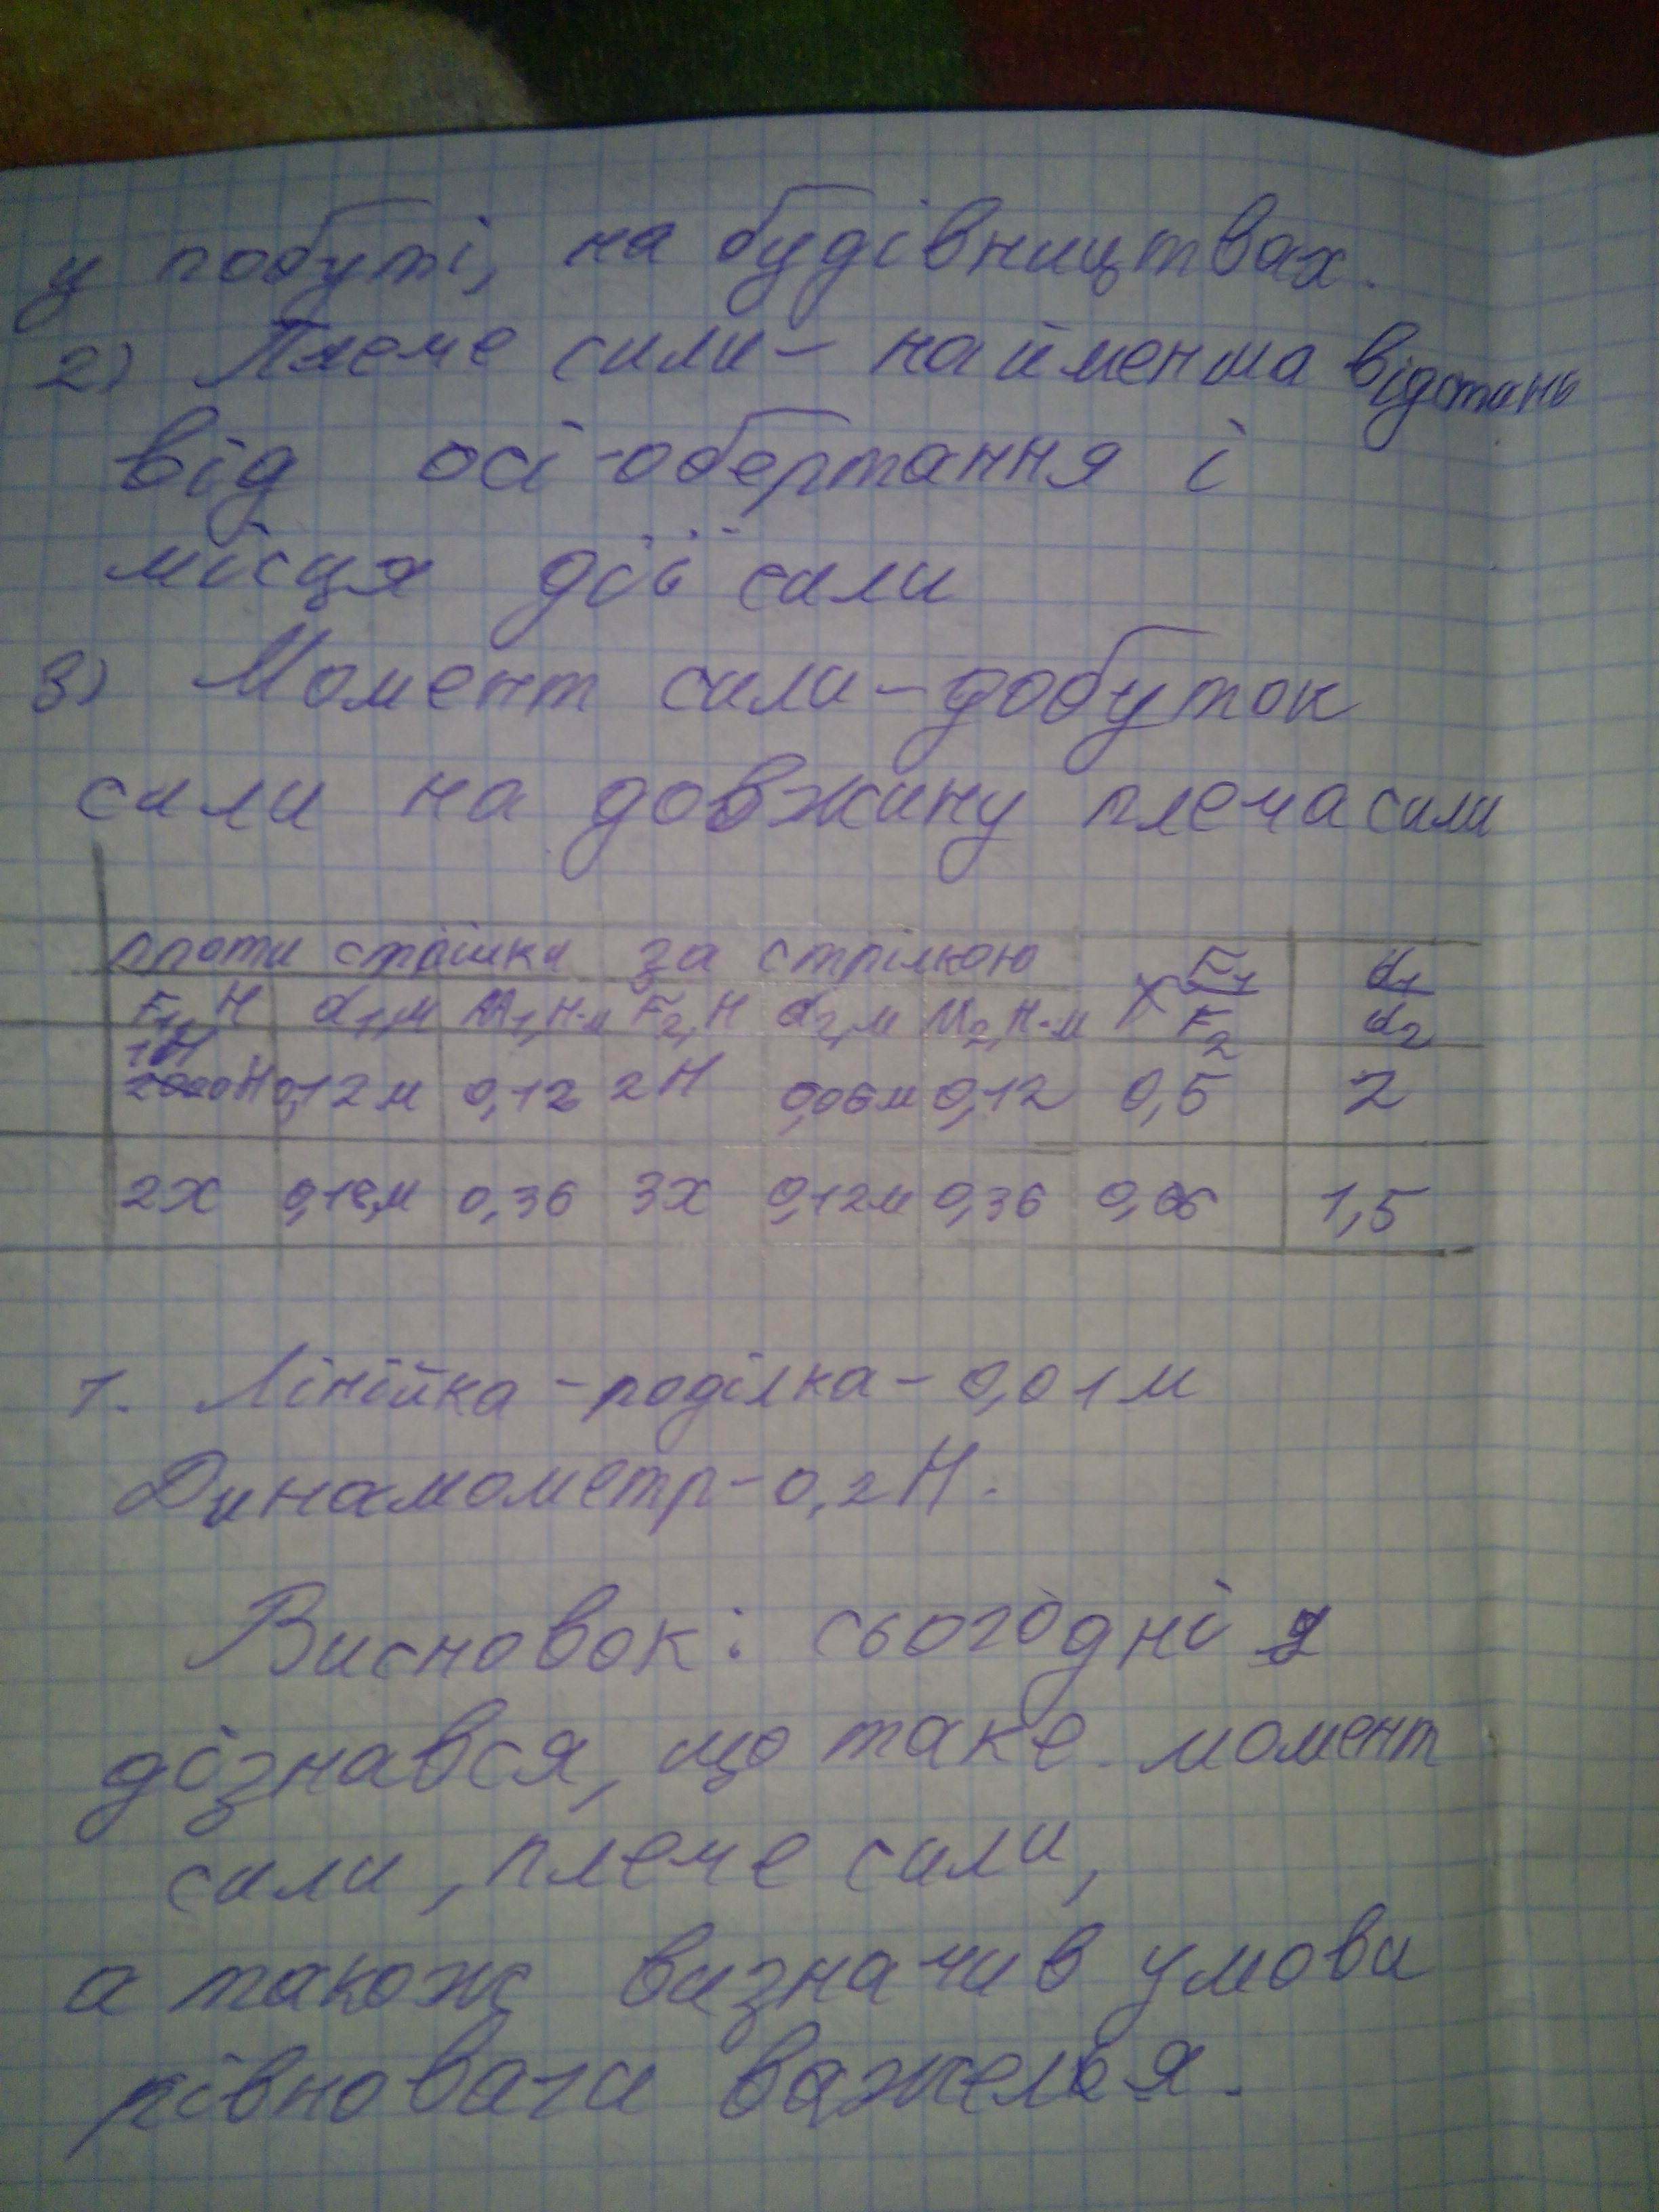 у побуті, на будівництвах.
2) Плече сили - найменша відстань
від осі обертання і
місця дії сили
3) Момент сили - добуток
сили на довжину плеча сили
проти стрілки за стрілкою F₁/F₂ d₁/d₂
F₁, Н d₁, м M₁, Н·м F₂, Н d₂, м M₂, Н·м
1Н 0,12м 0,12 2Н 0,06м 0,12 0,5 2
2Н 0,18м 0,36 3Н 0,12м 0,36 1,5
1. Лінійка - поділка - 0,01м
Динамометр - 0,2Н.
Висновок: сьогодні я
дізнався, що таке момент
сили, плече сили,
а також визначив умови
рівноваги важеля.